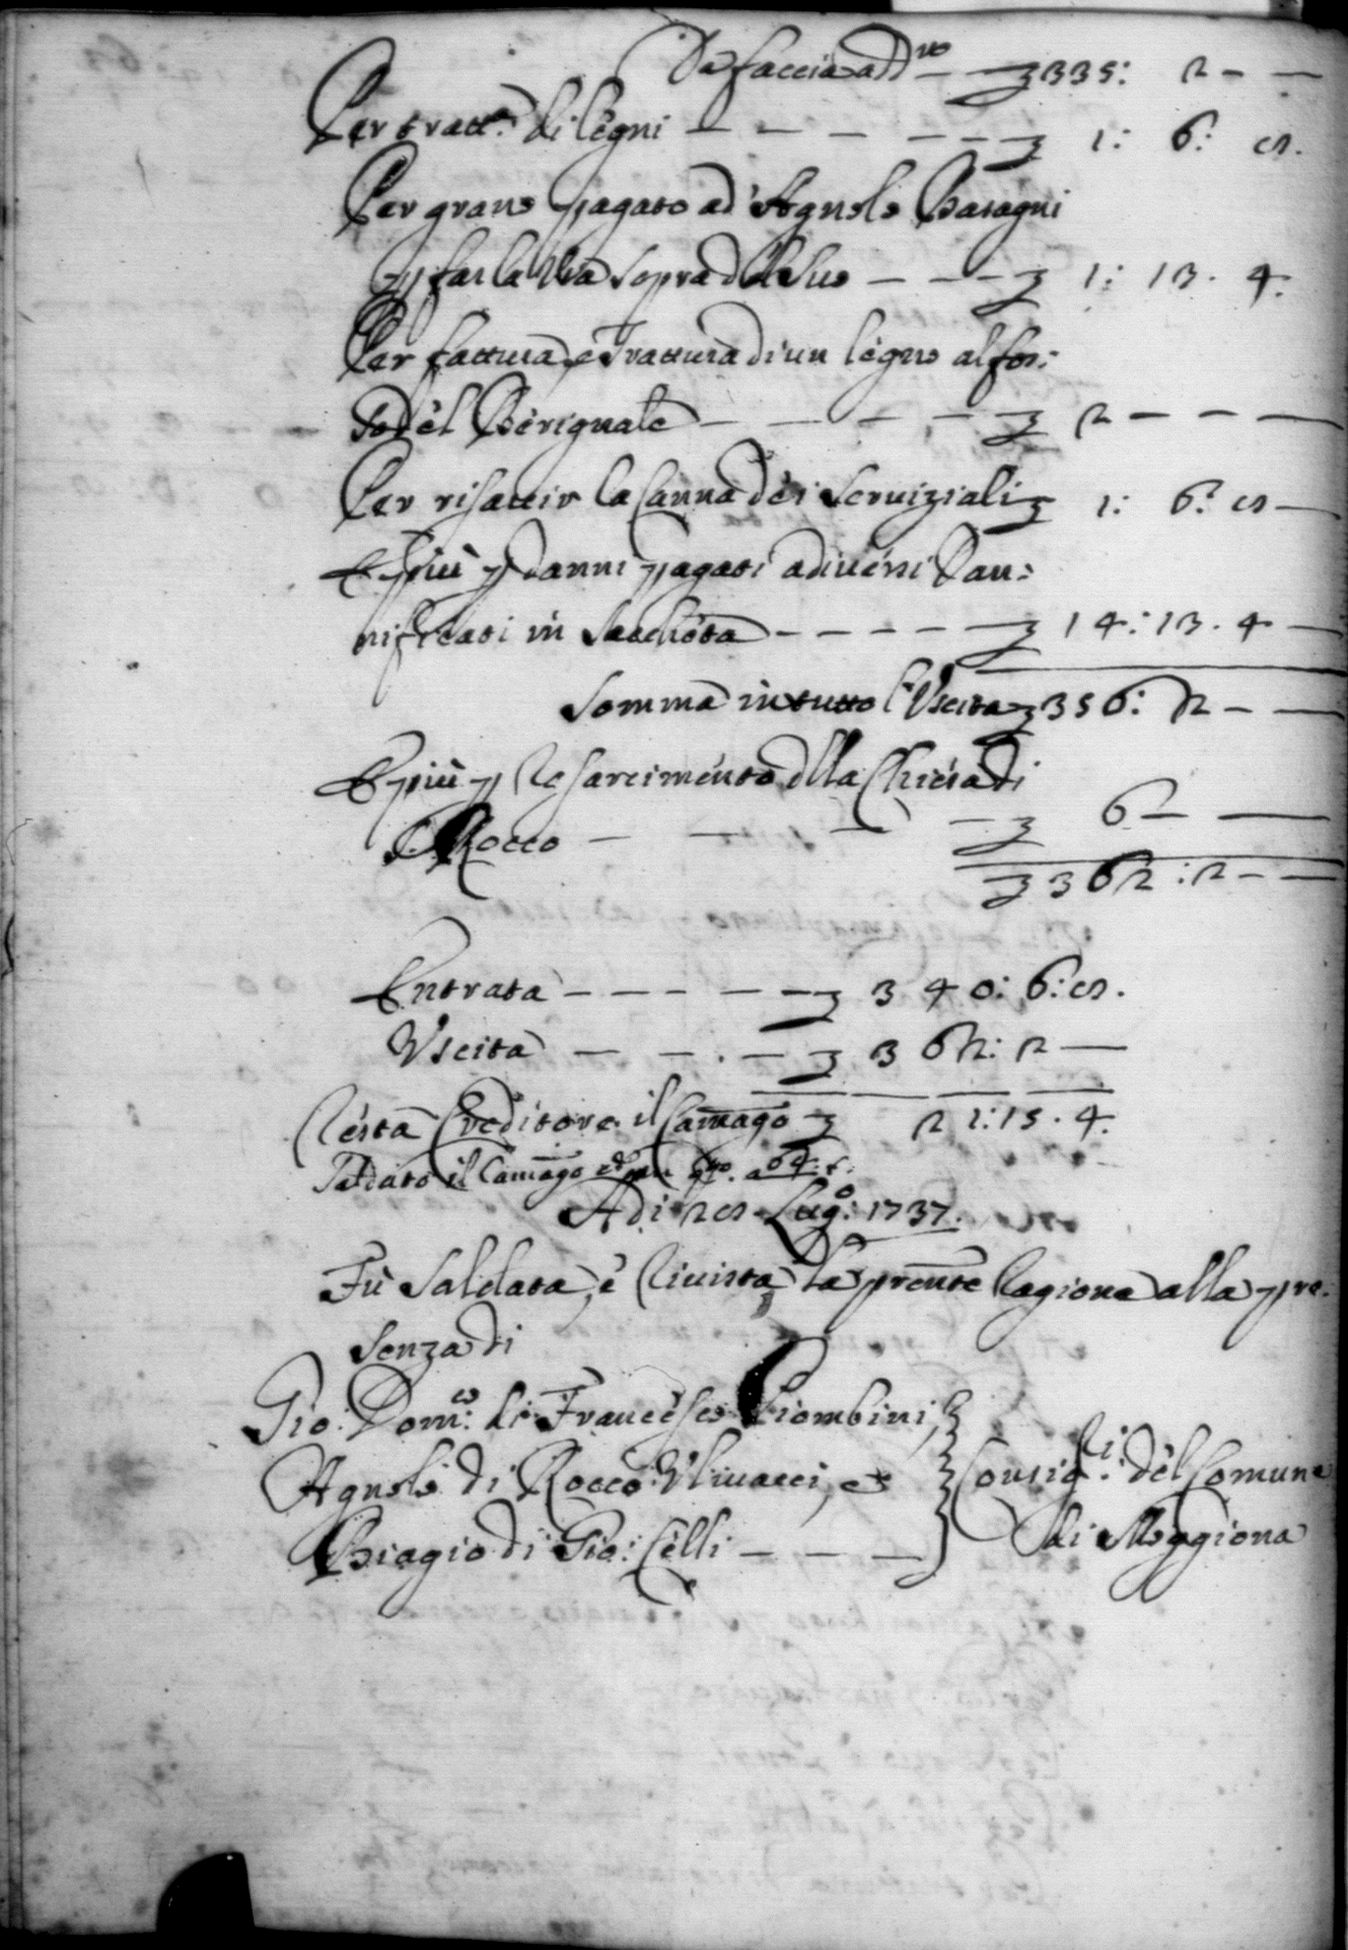 Da faccia add.ro — — ʒ 335: 2 — —
Per tratt.a di legni — — — — — — ʒ 1: 6: 8.
Per grano pagato ad Agnolo Baragni
p far la Via sopra d'l suo — — — ʒ 1: 13. 4:
Per fattura, e Trattura di un legno al fos:
so del Berignale — — — — — ʒ 2 — — —
Per risarcir la Canna dei Serviziali ʒ 1: 6: 8 —
E più p danni pagati a diversi Dan:
nificati in Saccheta — — — — — ʒ 14: 13. 4 —
Somma in tutto l'Uscita ʒ 356: 2 — —
E più p Resarcimento dlla Chiesa di
S. Rocco — — — — ʒ 6 — —
ʒ 362: 2 — —
Entrata — — — — — ʒ 340: 6: 8.
Uscita — — . — ʒ 362: 2 —
Resta Creditore il Camago ʒ 21: 15. 4.
Saldato il Camago
Adi 28 Lug.o: 1737.
Fù Saldata, è Rivista la prente Ragione alla pre:
senza di
Gio: Dom.co: di Francesco Piombini,
Agnolo di Rocco Ulivacci, e
Biagio di Gio: Celli — — —
Consig.ri: del Comune
di Moggiona